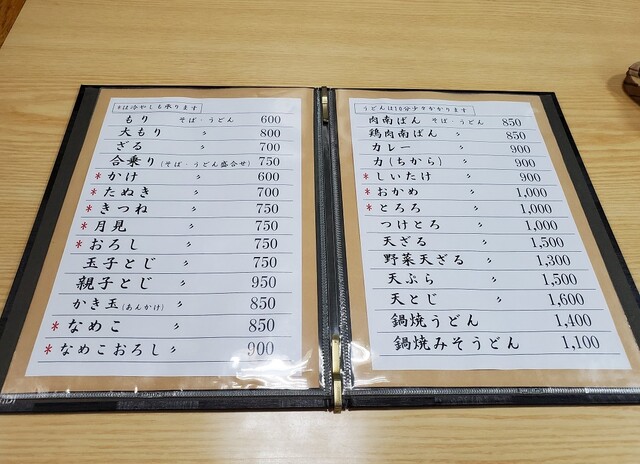 *は冷やしも承ります
もり そば・うどん 600
大もり 〃 800
ざる 〃 700
合乗り(そば・うどん盛合せ) 750
*かけ 〃 600
*たぬき 〃 700
*きつね 〃 750
*月見 〃 750
*おろし 〃 750
玉子とじ 〃 750
親子とじ 〃 950
かき玉(あんかけ) 〃 850
*なめこ 〃 850
*なめこおろし 〃 900
うどんは10分少々かかります
肉南ばん そば・うどん 850
鶏肉南ばん 〃 850
カレー 〃 900
力(ちから) 〃 900
*しいたけ 〃 900
*おかめ 〃 1,000
*とろろ 〃 1,000
つけとろ 〃 1,000
天ざる 〃 1,500
野菜天ざる 〃 1,300
天ぷら 〃 1,500
天とじ 〃 1,600
鍋焼うどん 1,400
鍋焼みそうどん 1,100